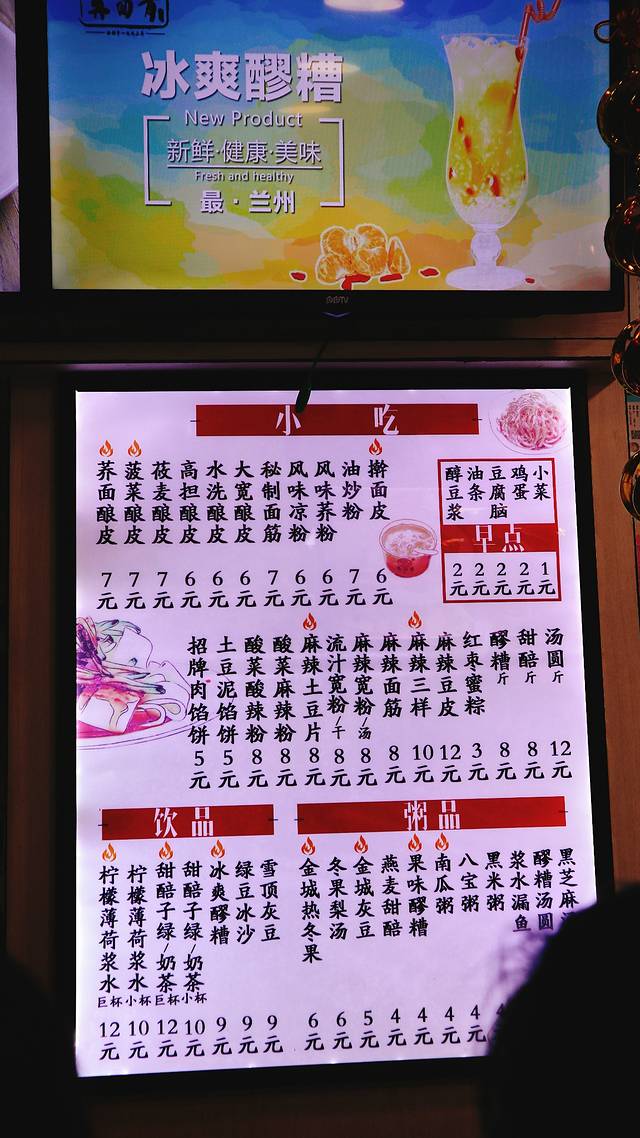 冰爽醪糟
New Product
新鲜·健康·美味
Fresh and healthy
最·兰州
小吃
荞面酿皮 7元
菠菜酿皮 7元
莜麦酿皮 7元
高担酿皮 6元
水洗酿皮 6元
大宽酿皮 6元
秘制面筋 7元
风味凉粉 6元
风味荞粉 6元
油炒粉 7元
擀面皮 6元
早点
醇豆浆 2元
油条 2元
豆腐脑 2元
鸡蛋 2元
小菜 1元
招牌肉馅饼 5元
土豆泥馅饼 5元
酸菜酸辣粉 8元
酸菜麻辣粉 8元
麻辣土豆片 8元
流汁宽粉/干 8元
麻辣宽粉/汤 8元
麻辣面筋 8元
麻辣三样 10元
麻辣豆皮 12元
红枣蜜粽 3元
醪糟斤 8元
甜醅斤 8元
汤圆斤 12元
饮品
柠檬薄荷浆水巨杯 12元
柠檬薄荷浆水小杯 10元
甜醅子绿/奶茶巨杯 12元
甜醅子绿/奶茶小杯 10元
冰爽醪糟 9元
绿豆冰沙 9元
雪顶灰豆 9元
粥品
金城热冬果 6元
冬果梨汤 6元
金城灰豆 5元
燕麦甜醅 4元
果味醪糟 4元
南瓜粥 4元
八宝粥 4元
黑米粥
浆水漏鱼
醪糟汤圆
黑芝麻